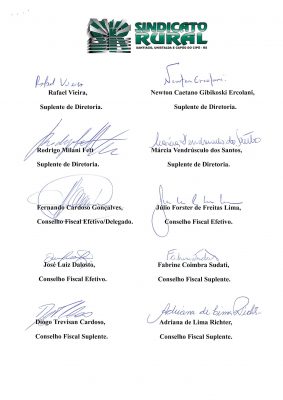 SINDICATO
RURAL
SANTIAGO, UNISTALDA E CAPÃO DO CIPÓ - RS
Rafael Vieira
Rafael Vieira,
Suplente de Diretoria.
Newton Caetano Gibikoski Ercolani,
Suplente de Diretoria.
Rodrigo Milani Fett
Suplente de Diretoria.
Márcia Vendrúsculo dos Santos,
Suplente de Diretoria.
Fernando Cardoso Gonçalves,
Conselho Fiscal Efetivo/Delegado.
Júlio Forster de Freitas Lima,
Conselho Fiscal Efetivo.
José Luiz Dalosto,
Conselho Fiscal Efetivo.
Fabrine Coimbra Sudati,
Conselho Fiscal Suplente.
Diogo Trevisan Cardoso,
Conselho Fiscal Suplente.
Adriana de Lima Richter
Adriana de Lima Richter,
Conselho Fiscal Suplente.